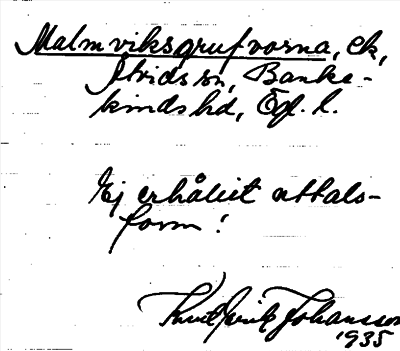 Malmviksgrufvorna, ek,
Stridsson, Banke-
kinds hd, Ögl. l.
Ej erhållit uttals-
form!
Knut Fredrik Johansson
1935